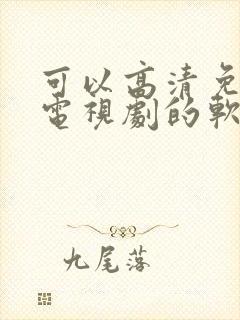 可以高清免
電視劇的軟
九尾落